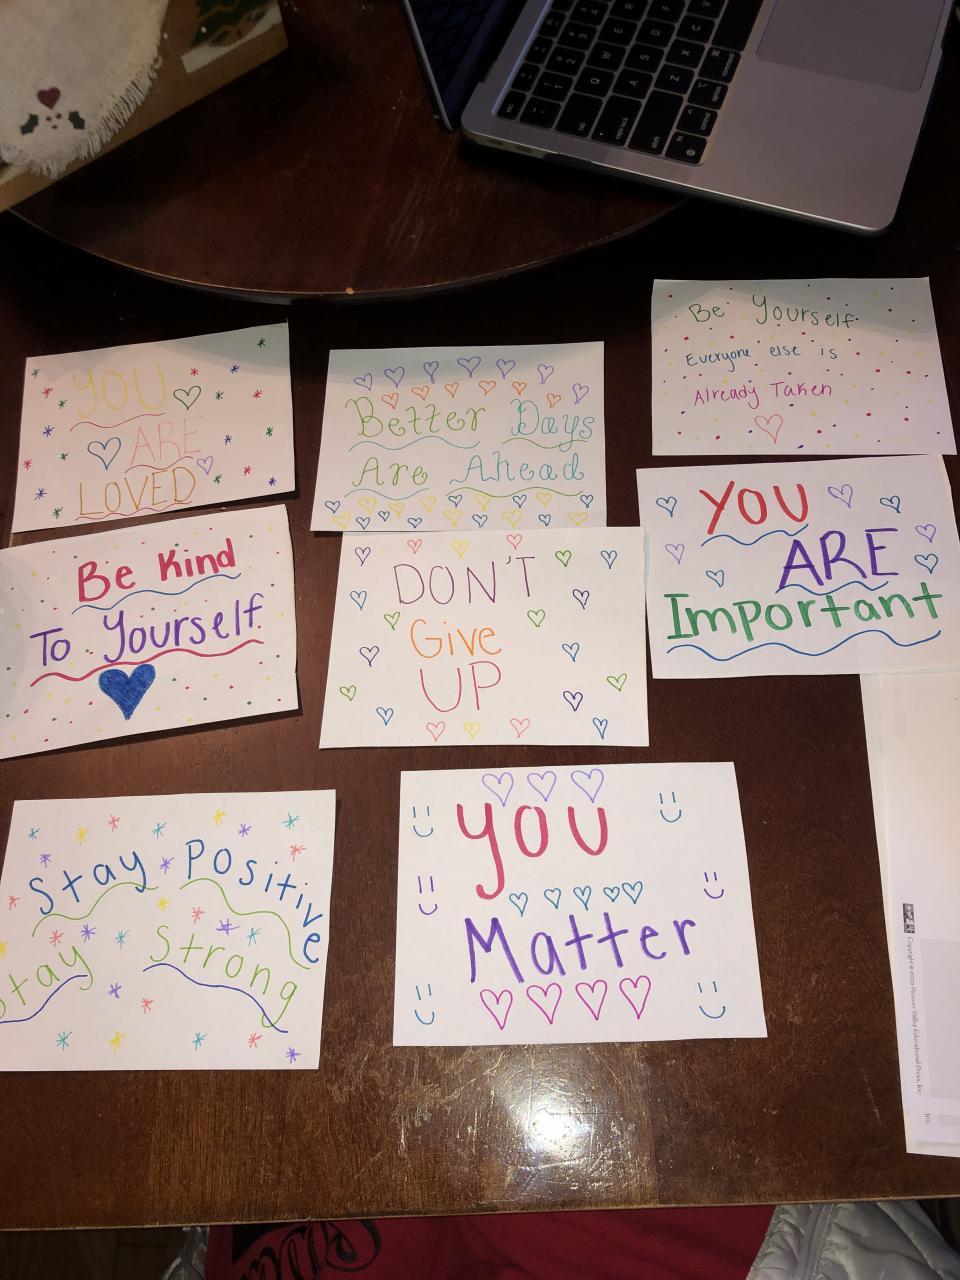 YOU
ARE
LOVED
Better Days
Are Ahead
Be Yourself
Everyone else is
Already Taken
Be Kind
To Yourself
DON'T
Give
UP
YOU
ARE
Important
Stay Positive
Stay Strong
you
Matter
Copyright © 2020 Pioneer Valley Educational Press, Inc.
Inc.